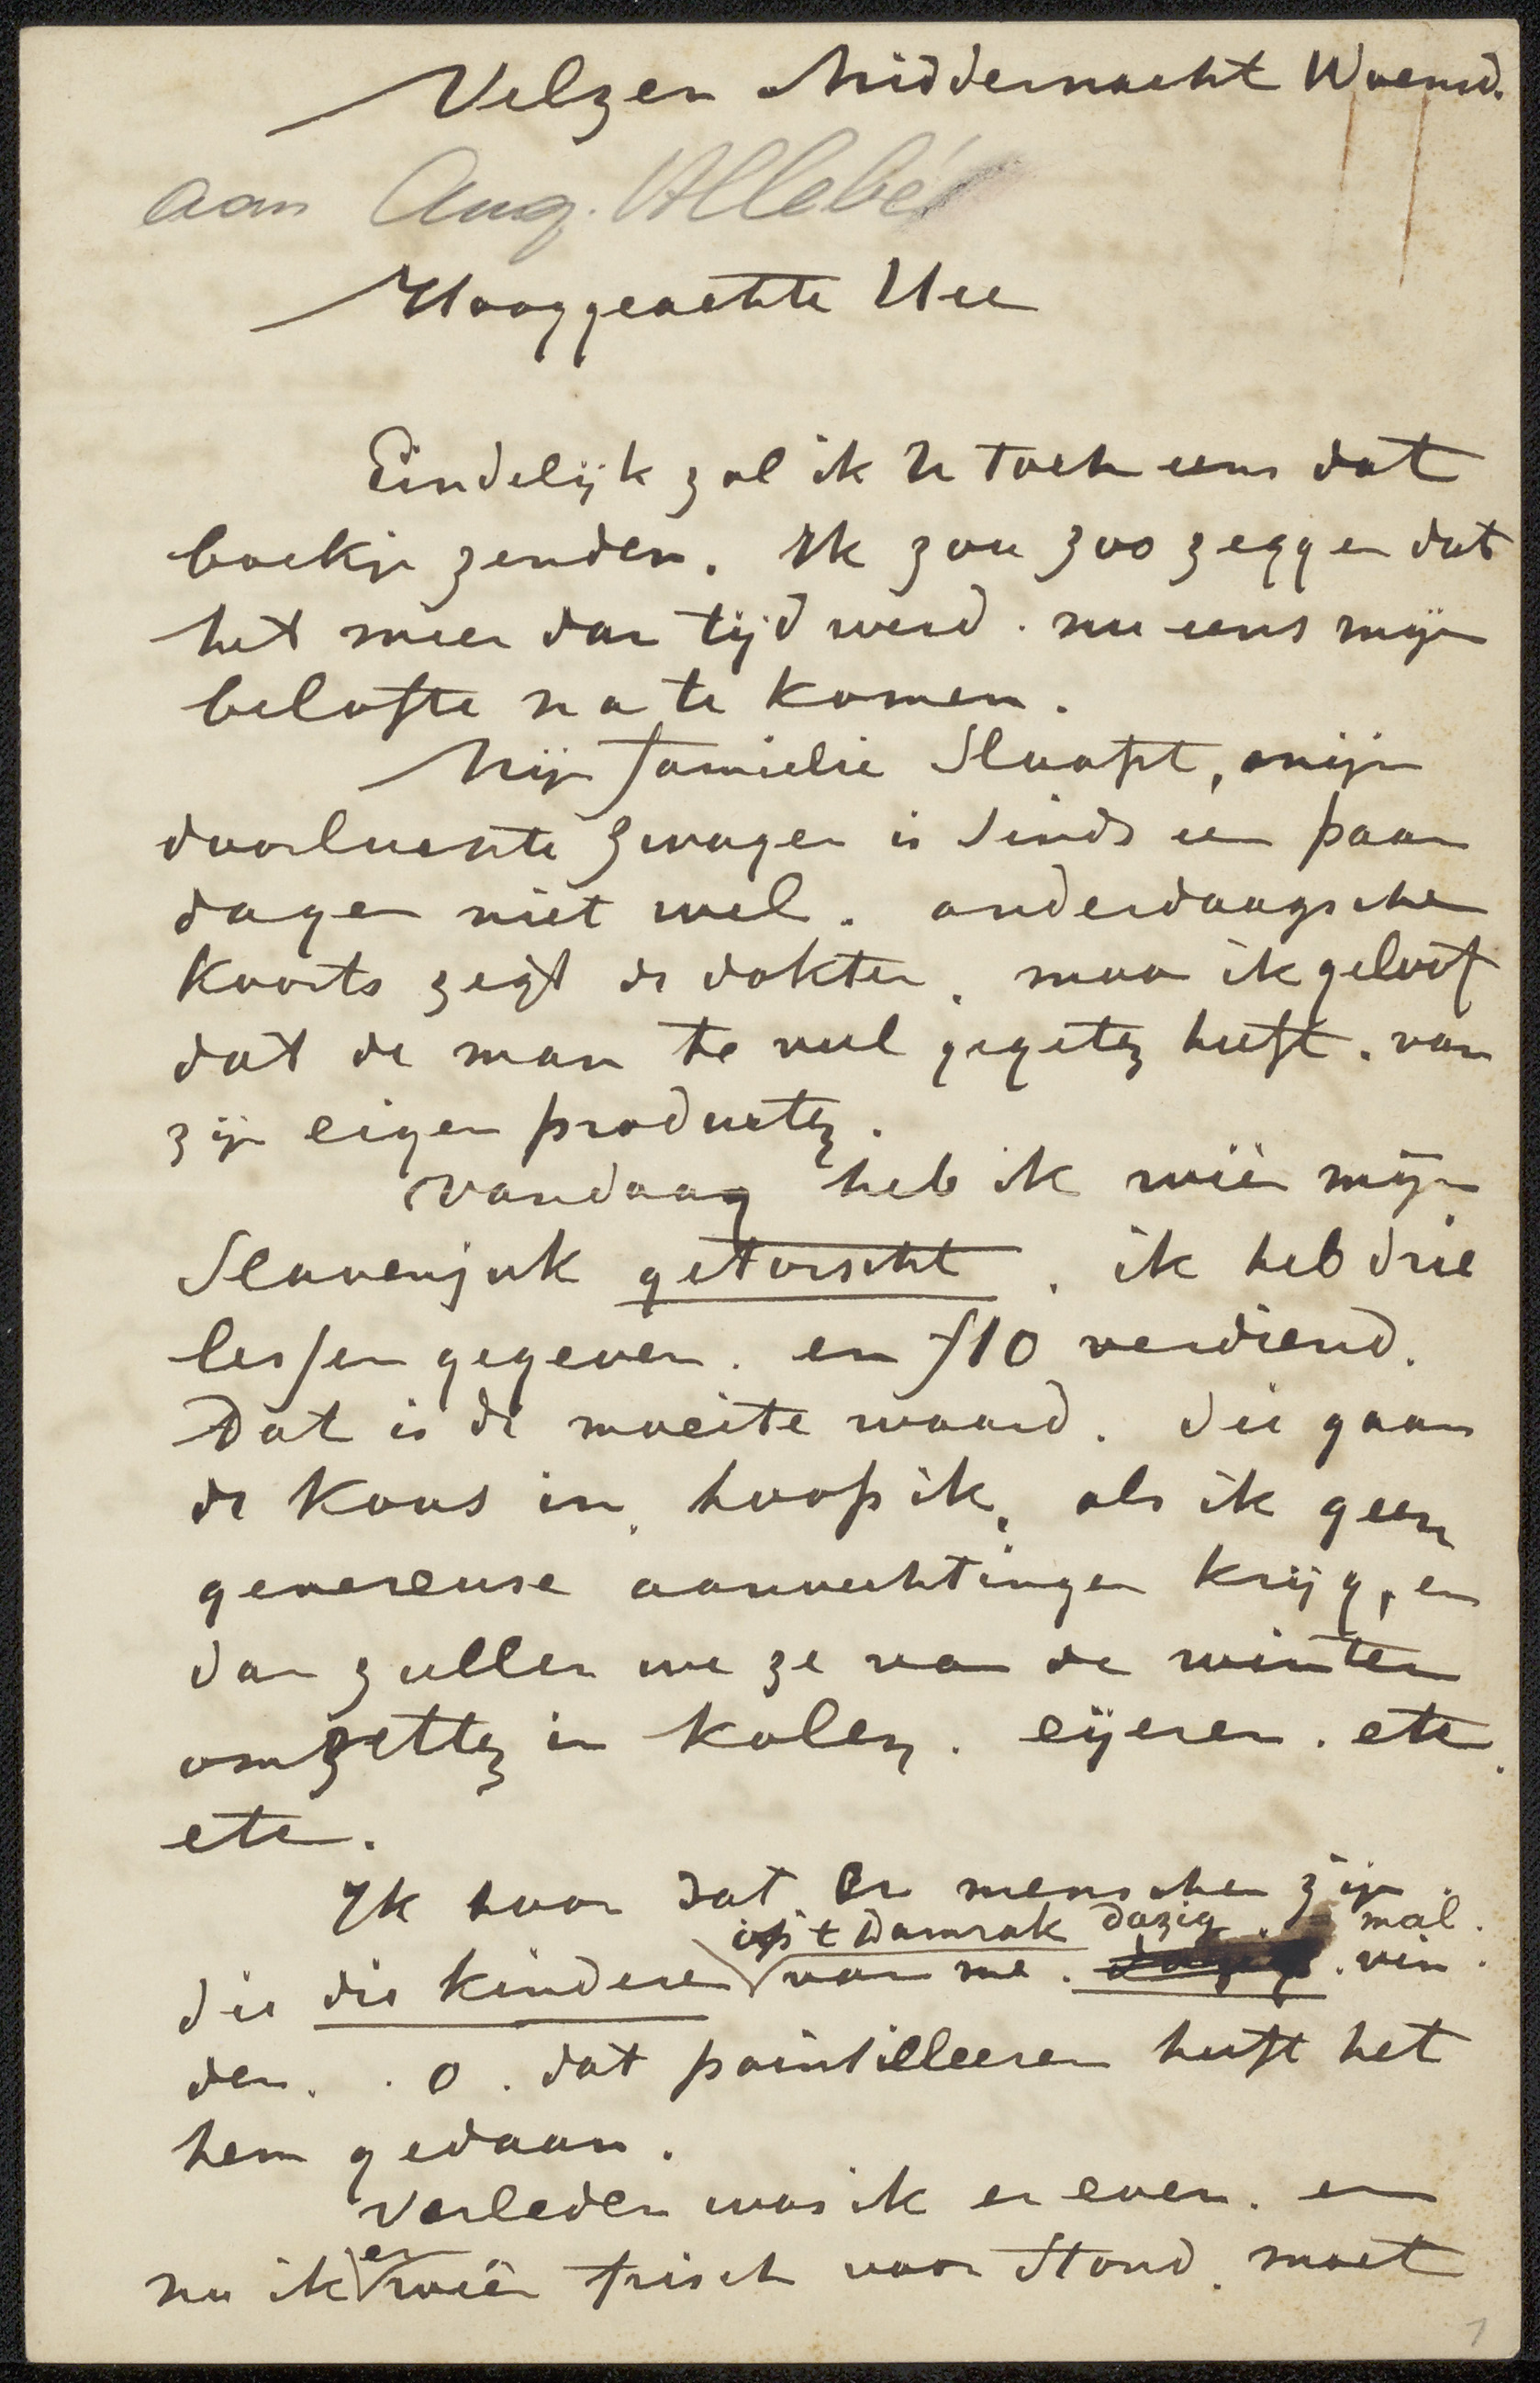 Velzen Middernacht Woensd.
aan Aug. Allebé
Hooggeachte Heer
Eindelijk zal ik U toch eens dat
boekje zenden. Ik zou zoo zeggen dat
het meer dan tijd werd. nu eens mijn
belofte na te komen.
Mijn familie slaapt, mijn
doorluchte zwager is sinds een paar
dagen niet wel. anderdaagsche
koorts zegt de dokter. maar ik geloof
dat de man te veel gegeten heeft. van
zijn eigen producten.
Vandaag heb ik weêr mijn
slavenjuk getorscht. ik heb drie
lessen gegeven. en f10 verdiend.
Dat is de moeite waard. die gaan
de kous in, hoop ik, als ik geen
genereuse aanvechtingen krijg, en
dan zullen we ze van de winter
omzetten in kolen. eijeren. etc.
etc.
Ik hoor dat er menschen zijn.
op 't Damrak dazig. mal.
die die kinderen van me. vin
den. . O. dat pointilleeren heeft het
hem gedaan.
Verleden was ik er even. en
er
nu ik weêr frisch voor stond. moet
1